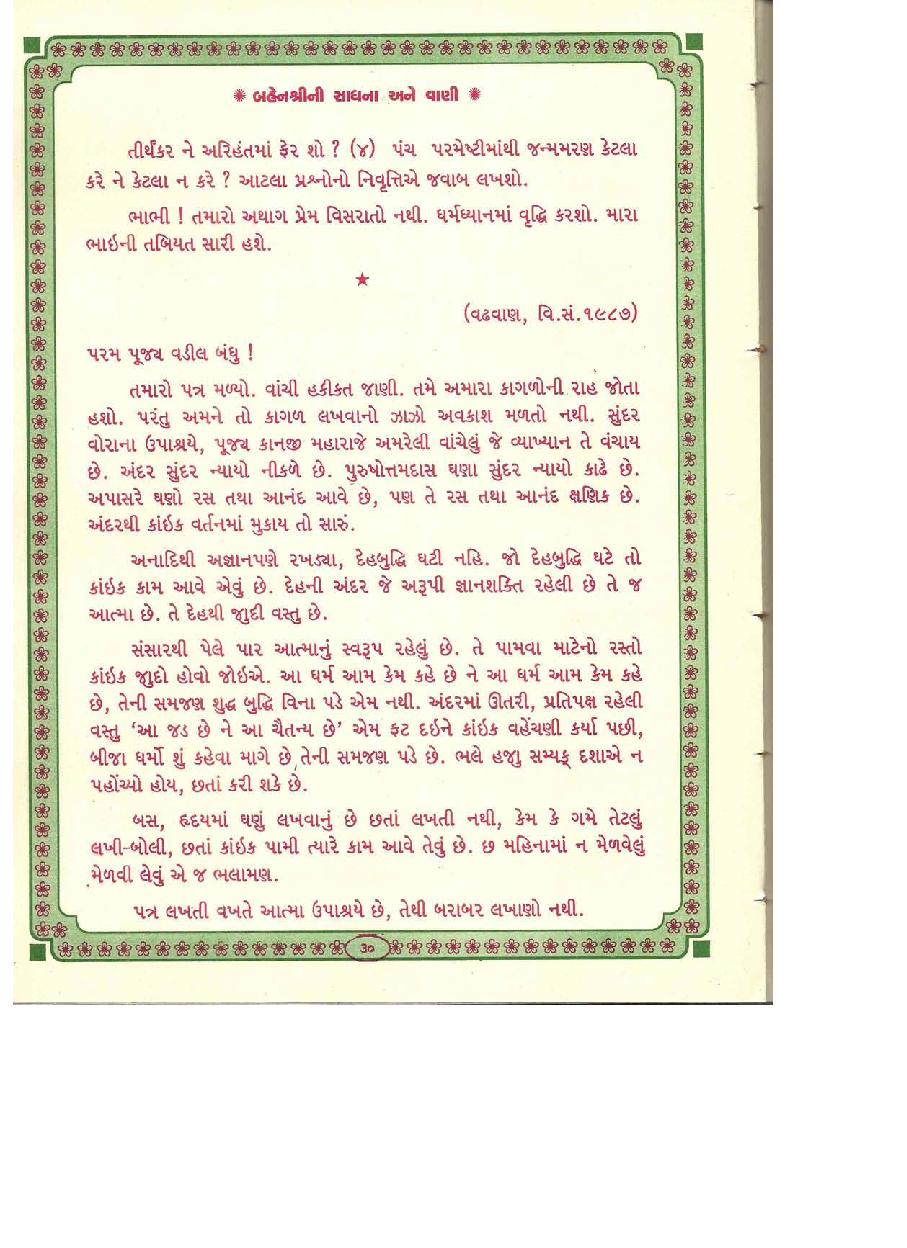 ✺ બહેનશ્રીની સાધના અને વાણી ✺
તીર્થંકર ને અરિહંતમાં ફેર શો ? (૪) પંચ પરમેષ્ટીમાંથી જન્મમરણ કેટલા
કરે ને કેટલા ન કરે ? આટલા પ્રશ્નોનો નિવૃત્તિએ જવાબ લખશો.
ભાભી ! તમારો અથાગ પ્રેમ વિસરાતો નથી. ધર્મધ્યાનમાં વૃદ્ધિ કરશો. મારા
ભાઇની તબિયત સારી હશે.
★
(વઢવાણ, વિ.સં.૧૯૮૭)
પરમ પૂજ્ય વડીલ બંધુ !
તમારો પત્ર મળ્યો. વાંચી હકીકત જાણી. તમે અમારા કાગળોની રાહ જોતા
હશો. પરંતુ અમને તો કાગળ લખવાનો ઝાઝો અવકાશ મળતો નથી. સુંદર
વોરાના ઉપાશ્રયે, પૂજ્ય કાનજી મહારાજે અમરેલી વાંચેલું જે વ્યાખ્યાન તે વંચાય
છે. અંદર સુંદર ન્યાયો નીકળે છે. પુરુષોત્તમદાસ ઘણા સુંદર ન્યાયો કાઢે છે.
અપાસરે ઘણો રસ તથા આનંદ આવે છે, પણ તે રસ તથા આનંદ ક્ષણિક છે.
અંદરથી કાંઇક વર્તનમાં મુકાય તો સારું.
અનાદિથી અજ્ઞાનપણે રખડ્યા, દેહબુદ્ધિ ઘટી નહિ. જો દેહબુદ્ધિ ઘટે તો
કાંઇક કામ આવે એવું છે. દેહની અંદર જે અરૂપી જ્ઞાનશક્તિ રહેલી છે તે જ
આત્મા છે. તે દેહથી જુદી વસ્તુ છે.
સંસારથી પેલે પાર આત્માનું સ્વરૂપ રહેલું છે. તે પામવા માટેનો રસ્તો
કાંઇક જુદો હોવો જોઇએ. આ ધર્મ આમ કેમ કહે છે ને આ ધર્મ આમ કેમ કહે
છે, તેની સમજણ શુદ્ધ બુદ્ધિ વિના પડે એમ નથી. અંદરમાં ઊતરી, પ્રતિપક્ષ રહેલી
વસ્તુ ‘આ જડ છે ને આ ચૈતન્ય છે’ એમ ફટ દઇને કાંઇક વહેંચણી કર્યા પછી,
બીજા ધર્મો શું કહેવા માગે છે તેની સમજણ પડે છે. ભલે હજુ સમ્યક્ દશાએ ન
પહોંચ્યો હોય, છતાં કરી શકે છે.
બસ, હૃદયમાં ઘણું લખવાનું છે છતાં લખતી નથી, કેમ કે ગમે તેટલું
લખી-બોલી, છતાં કાંઇક પામી ત્યારે કામ આવે તેવું છે. છ મહિનામાં ન મેળવેલું
મેળવી લેવું એ જ ભલામણ.
પત્ર લખતી વખતે આત્મા ઉપાશ્રયે છે, તેથી બરાબર લખાણો નથી.
૩૦